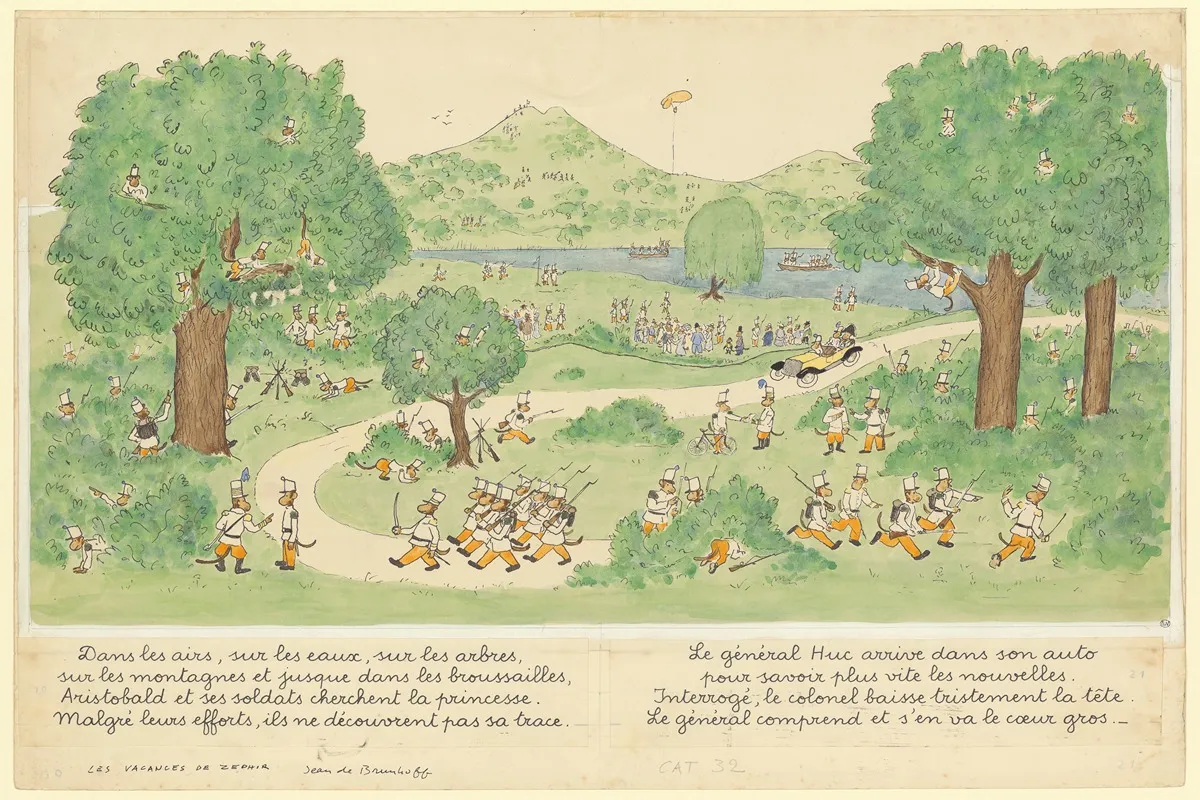 Dans les airs, sur les eaux, sur les arbres,
sur les montagnes et jusque dans les broussailles,
Aristobald et ses soldats cherchent la princesse.
Malgré leurs efforts, ils ne découvrent pas sa trace.
Le général Huc arrive dans son auto
pour savoir plus vite les nouvelles.
Interrogé, le colonel baisse tristement la tête.
Le général comprend et s'en va le cœur gros._
LES VACANCES DE ZEPHIR Jean de Brunhoff
CAT 32